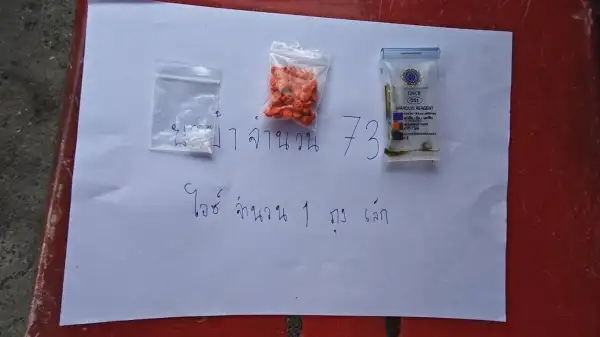 ONCB
051
MARQUIS REAGENT
ยาบ้า จำนวน 73
ไอซ์ จำนวน 1 ถุง เล็ก